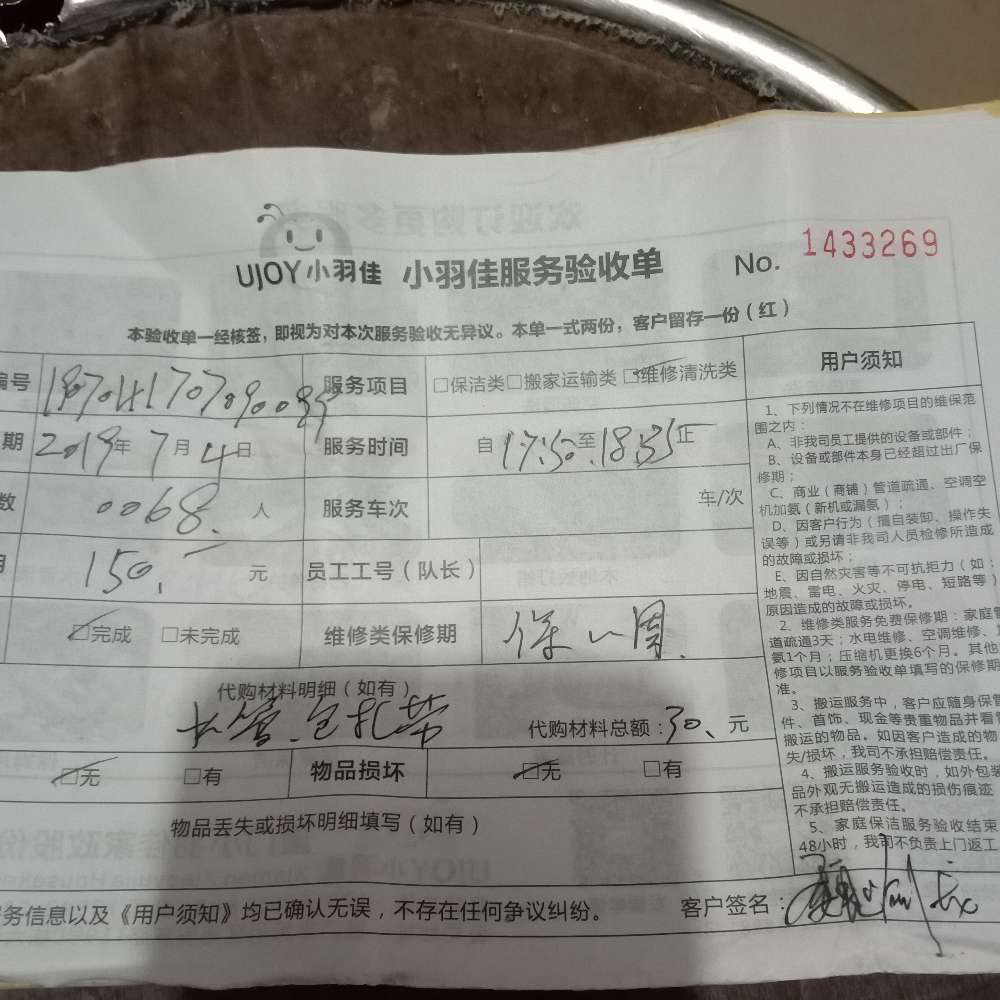 UJOY小羽佳 小羽佳服务验收单 No. 1433269
本验收单一经核签，即视为对本次服务验收无异议。本单一式两份，客户留存一份（红）
编号 服务项目 □保洁类□搬家运输类☑维修清洗类
期 2019年7月4日 服务时间 自17:50至18:35止
数 0068 人 服务车次 车/次
150 元 员工工号（队长）
☑完成 □未完成 维修类保修期 保一周
代购材料明细（如有）
水管 包扎带 代购材料总额：30 元
☑无 □有 物品损坏 ☑无 □有
物品丢失或损坏明细填写（如有）
务信息以及《用户须知》均已确认无误，不存在任何争议纠纷。 客户签名：
用户须知
1、下列情况不在维修项目的维保范
围之内：
A、非我司员工提供的设备或部件；
B、设备或部件本身已经超过出厂保
修期；
C、商业（商铺）管道疏通、空调空
机加氨（新机或漏氨）；
D、因客户行为（擅自装卸、操作失
误等）或另请非我司人员检修所造成
的故障或损坏；
E、因自然灾害等不可抗拒力（如：
地震、雷电、火灾、停电、短路等）
原因造成的故障或损坏。
2、维修类服务免费保修期：家庭管
道疏通3天；水电维修、空调维修、
氨1个月；压缩机更换6个月。其他
修项目以服务验收单填写的保修期
准。
3、搬运服务中，客户应随身保管
件、首饰、现金等贵重物品并看管
搬运的物品。如因客户造成的物
失/损坏，我司不承担赔偿责任。
4、搬运服务验收时，如外包装
品外观无搬运造成的损伤痕迹
不承担赔偿责任。
5、家庭保洁服务验收结束
48小时，我司不负责上门返工